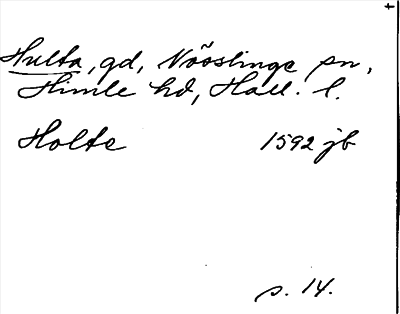 Hulta, gd, Nösslinge sn,
Himle hd, Hall. l.
Holte 1592 jb
s. 14.